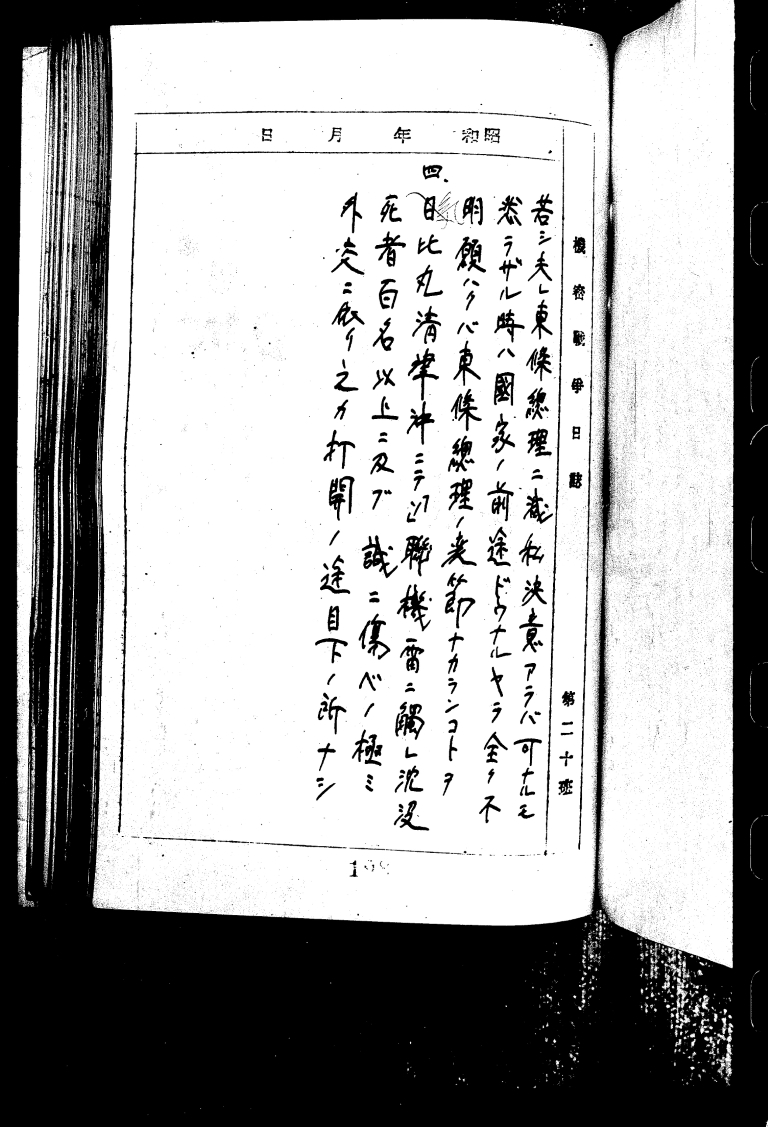 機密戰爭日誌
第二十班
昭和 年 月 日
若シ夫レ東條總理ニ滅私決意アラバ可ナルモ
然ラザル時ハ國家ノ前途ドウナルヤラ全ク不
明 願ハクバ東條總理ノ変節ナカランコトヲ
四、
日比丸清津沖ニテ「ソ」聯機雷ニ觸レ沈没
死者百名以上ニ及ブ 誠ニ傷ベノ極ミ
外交ニ依リ之カ打開ノ途目下ノ所ナシ